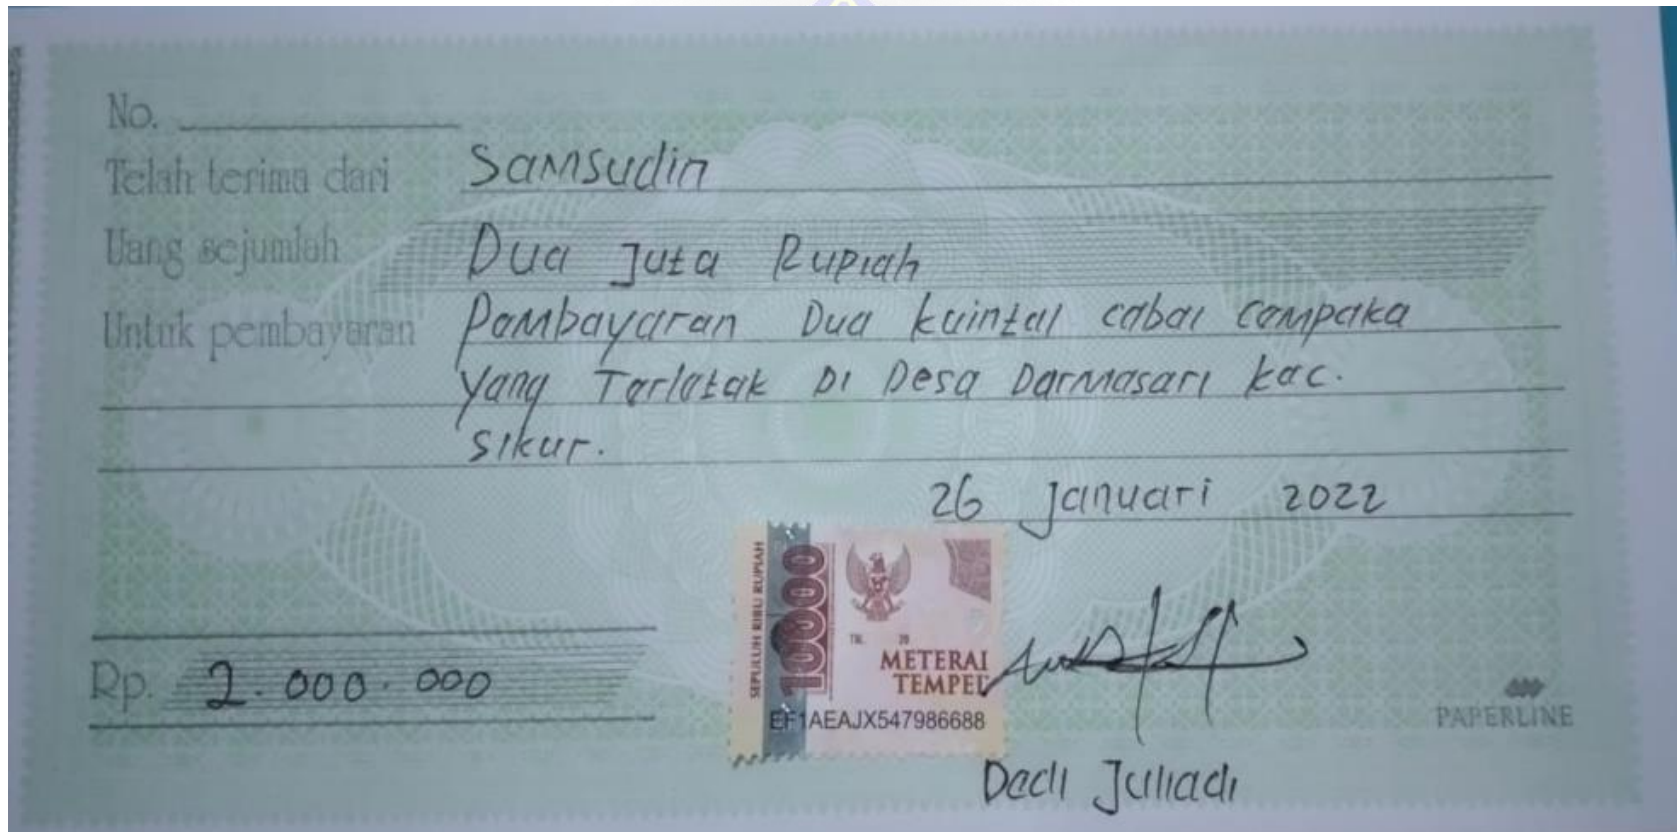 No.
Telah terima dari Samsudin
Uang sejumlah Dua Juta Rupiah
Untuk pembayaran Pembayaran Dua kuintal cabai cempaka
yang Terletak Di Desa Darmasari kec.
sikur.
26 Januari 2022
SEPULUH RIBU RUPIAH
10000
TGL. 20
METERAI
TEMPEL
EF1AEAJX547986688
Rp. 2.000.000
PAPERLINE
Dedi Juliadi